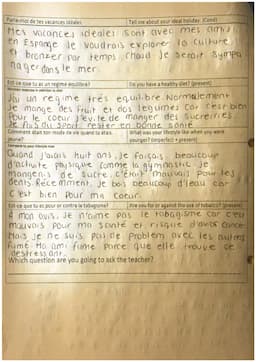 Parle-moi de tes vacances idéales Tell me about your ideal holiday. (Cond)
Mes vacances idéales sont avec mes amis
en Espagne Je voudrais explorer la culture
et bronzer par temps chaud Je serait sympa
nager dans le mer.
Est-ce que tu as un régime équilibré? Do you have a healthy diet? (present)
J'ai un regime très equilibré Normalement
Je mange des fruit et des legumes car c'est bien
Pour le cœur J'evite de manger des sucreries
Je fais du sport rester en bonne santé
Comment était ton mode de vie quand tu étais What was your lifestyle like when you were
jeune? younger? (imperfect + present)
Quand J'avais huit ans, Je faisais beaucoup
d'activité physique comme la gymnastic Je
mangenis de sucre. c'était mauvais pour les
dents. Récemment, Je bois beaucoup d'eau car
c'est bien pour ma coeur.
Est-ce que tu es pour ou contre le tabagisme? Are you for or against the use of tobacco? (present)
A mon avis, Je n'aime pas le tabagisme car c'est
mauvais pour ma santé et risque d'avoir cancer
Mais Je ne suis pas de problem avec les autres
fume Ma ami fume parce que elle trouve ce
destressant.
Which question are you going to ask the teacher?